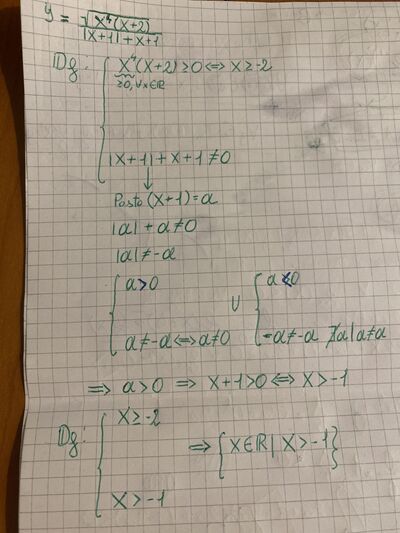 y = √(x⁴(x+2)) / (|x+1| + x+1)
Df: { x⁴(x+2) ≥ 0 ⟺ x ≥ -2
≥0, ∀x∈ℝ
|x+1| + x+1 ≠ 0
↓
Posto (x+1) = a
|a| + a ≠ 0
|a| ≠ -a
{ a > 0 ∪ { a < 0
a ≠ -a ⟺ a ≠ 0 -a ≠ -a ∄a | a ≠ a
⟹ a > 0 ⟹ x+1 > 0 ⟺ x > -1
Df: { x ≥ -2
⟹ {x∈ℝ | x > -1}
x > -1